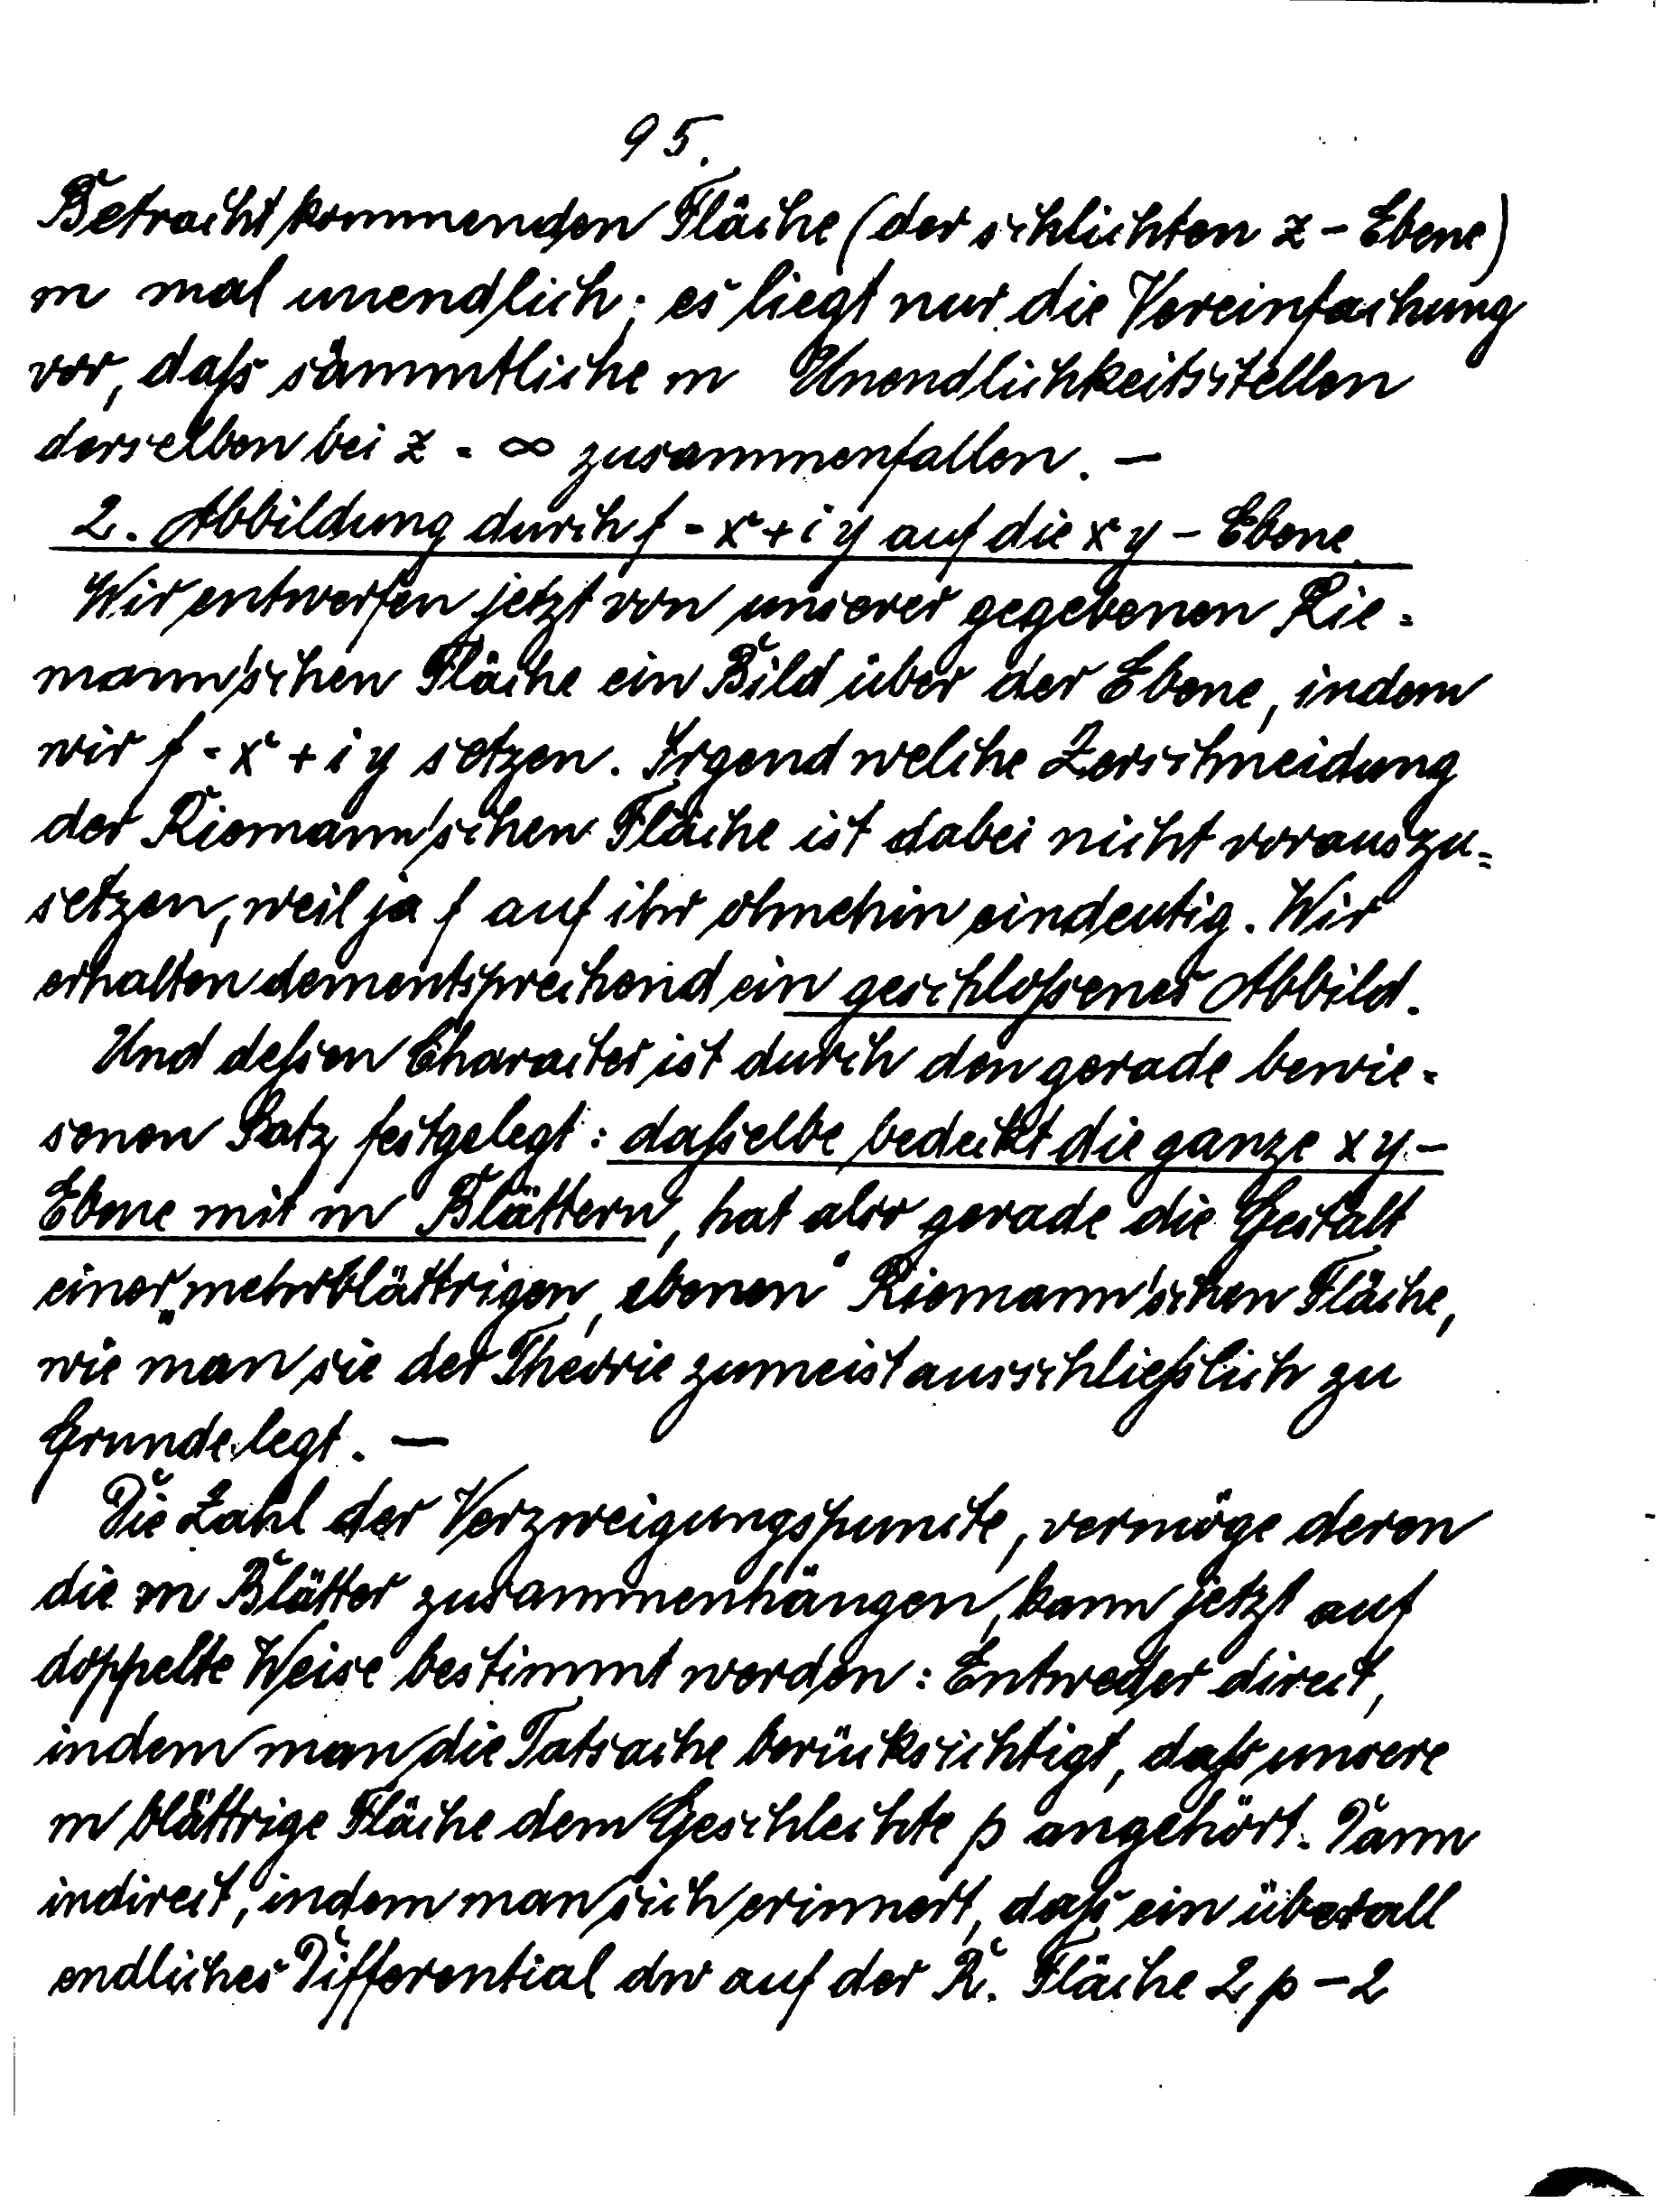 95.
Betracht kommenden Fläche (der schlichten z - Ebene)
m mal unendlich; es liegt nur die Vereinfachung
vor, daſs sämmtliche m Unendlichkeitsstellen
derselben bei z = ∞ zusammenfallen. —
2. Abbildung durch f = x + i y auf die x y - Ebene.
Wir entwerfen jetzt von unserer gegebenen Rie=
mann'schen Fläche ein Bild über der Ebene, indem
wir f = x + i y setzen. Irgend welche Zerschneidung
der Riemann'schen Fläche ist dabei nicht vorauszu=
setzen, weil ja f auf ihr ohnehin eindeutig. Wir
erhalten dementsprechend ein geschloſsenes Abbild.
Und deſsen Character ist durch den gerade bewie=
senen Satz festgelegt: daſselbe bedeckt die ganze x y -
Ebene mit m Blättern, hat also gerade die Gestalt
einer „mehrblättrigen, ebenen" Riemann'schen Fläche,
wie man sie der Theorie zumeist ausschlieſslich zu
Grunde legt. —
Die Zahl der Verzweigungspuncte, vermöge deren
die m Blätter zusammenhängen, kann jetzt auf
doppelte Weise bestimmt werden: Entweder direct,
indem man die Tatsache berücksichtigt, daſs unsere
m blättrige Fläche dem Geschlechte p angehört. Dann
indirect, indem man sich erinnert, daſs ein überall
endliches Differential dw auf der R. Fläche 2 p - 2